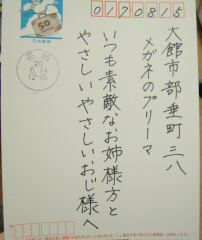 0170815
大館市部垂町三八
メガネのプリーマ
いつも素敵なお姉様方と
やさしいやさしいおじ様へ
50
日本郵便
20
6.14
12-18